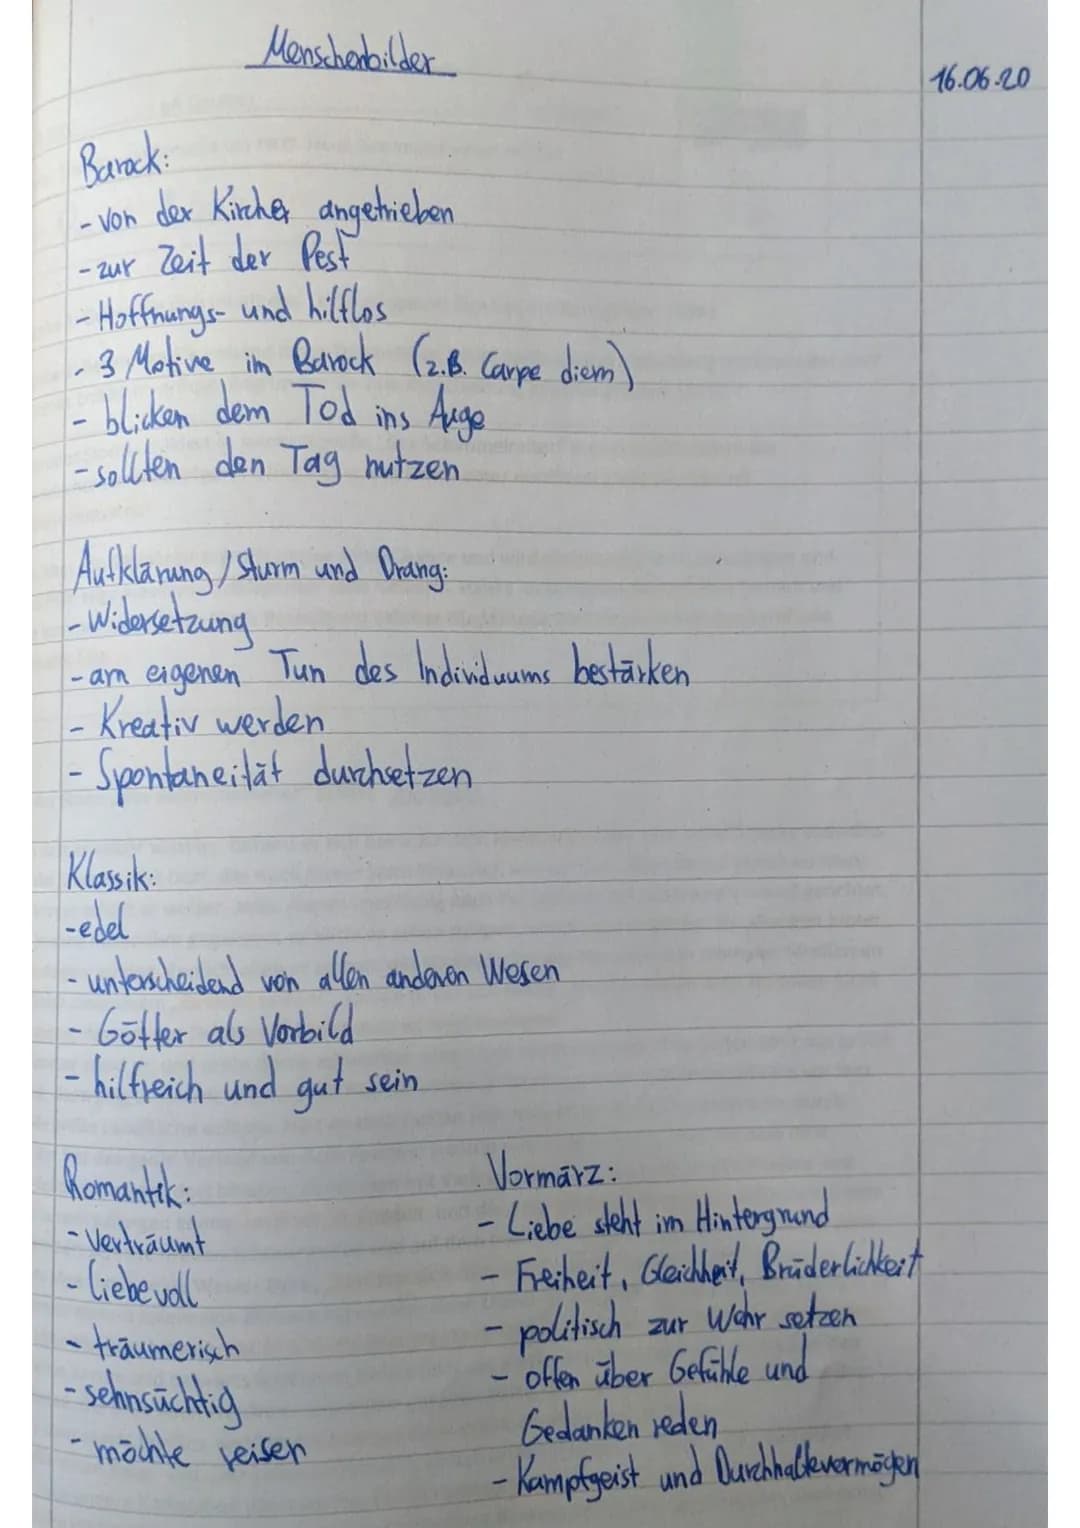 Menschenbilder
16.06.20
Barock:
- von der Kirche angetrieben
- zur Zeit der Pest
- Hoffnungs- und hilflos
- 3 Motive im Barock (z.B. Carpe diem)
- blicken dem Tod ins Auge
- sollten den Tag nutzen
Aufklärung / Sturm und Drang:
- Widersetzung
- am eigenen Tun des Individuums bestärken
- Kreativ werden
- Spontaneität durchsetzen
Klassik:
- edel
- unterscheidend von allen anderen Wesen
- Götter als Vorbild
- hilfreich und gut sein
Romantik:
- verträumt
- liebevoll
- träumerisch
- sehnsüchtig
- möchte reisen
Vormärz:
- Liebe steht im Hintergrund
- Freiheit, Gleichheit, Brüderlichkeit
- politisch zur Wehr setzen
- offen über Gefühle und
Gedanken reden
- Kampfgeist und Durchhaltevermögen